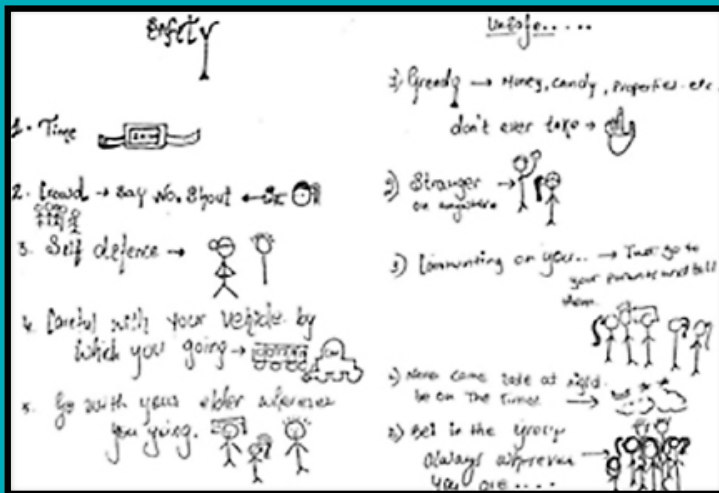 Safety
1. Time
2. Crowd → Say No. Shout ←
3. Self defence →
4. Careful with your vehicle by
which you going →
5. Go with your elder wherever
you going.
Unsafe.....
1) Greedy → Money, candy, properties etc.
don't ever take →
2) Stranger →
on anywhere
3) Commenting on you.. → Just go to
your parents and tell
them.
Never come late at night.
be on The Time. →
in the group
always wherever
you are ....